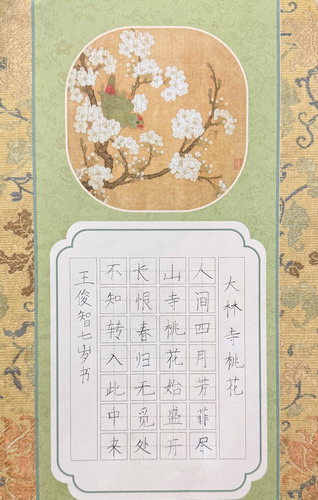 大林寺桃花
人间四月芳菲尽
山寺桃花始盛开
长恨春归无觅处
不知转入此中来
王俊智七岁书